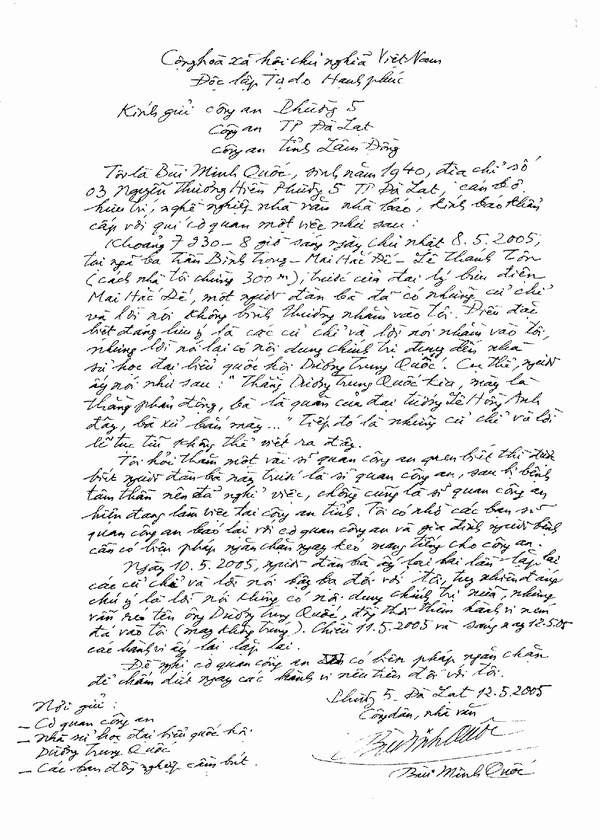 Cộng hoà xã hội chủ nghĩa Việt Nam
Độc lập Tự do Hạnh phúc
Kính gửi công an Phường 5
Công an TP Đà Lạt
Công an tỉnh Lâm Đồng
Tôi là Bùi Minh Quốc, sinh năm 1940, địa chỉ số
03 Nguyễn Thượng Hiền Phường 5 TP Đà Lạt, cán bộ
hưu trí, nghề nghiệp nhà văn nhà báo, kính báo khẩn
cấp với quí cơ quan một việc như sau:
Khoảng 7g30 - 8 giờ sáng ngày chủ nhật 8.5.2005,
tại ngã ba Trần Bình Trọng - Mai Hắc Đế - Lê Thánh Tôn
(cách nhà tôi chừng 300m), trước cửa đại lý bưu điện
Mai Hắc Đế, một người đàn bà đã có những cử chỉ
và lời nói không bình thường nhằm vào tôi. Điều đặc
biệt đáng lưu ý là các cử chỉ và lời nói nhằm vào tôi,
nhưng lời nói lại có nội dung chính trị đụng đến nhà
sử học đại biểu quốc hội Dương Trung Quốc. Cụ thể, người
ấy nói như sau: "Thằng Dương Trung Quốc kia, mày là
thằng phản động, bà là quân của đại tướng Lê Hồng Anh
đây, bà xử bắn mày..." Tiếp đó là những cử chỉ và lời
lẽ tục tĩu không thể viết ra đây.
Tôi hỏi thăm một vài sĩ quan công an quen biết thì được
biết người đàn bà này trước là sĩ quan công an, sau bị bệnh
tâm thần nên đã nghỉ việc, chồng cũng là sĩ quan công an
hiện đang làm việc tại công an tỉnh. Tôi có nhờ các bạn sĩ
quan công an báo lại với cơ quan công an và gia đình người bệnh
cần có biện pháp ngăn chặn ngay kẻo mang tiếng cho công an.
Ngày 10.5.2005, người đàn bà ấy lại hai lần lặp lại
các cử chỉ và lời nói bậy bạ đối với tôi, tuy nhiên đáng
chú ý là lời nói không có nội dung chính trị nữa, nhưng
vẫn réo tên ông Dương Trung Quốc, đồng thời thêm hành vi ném
đá vào tôi (may không trúng). Chiều 11.5.2005 và sáng nay 12.5.05
các hành vi ấy lại lặp lại.
Đề nghị cơ quan công an có biện pháp ngăn chặn
để chấm dứt ngay các hành vi nêu trên đối với tôi.
Phường 5. Đà Lạt 12.5.2005
Công dân, nhà văn
Bùi Minh Quốc
Bùi Minh Quốc
Nơi gửi:
- Cơ quan công an
- Nhà sử học đại biểu quốc hội
Dương Trung Quốc
- Các bạn đồng nghiệp cầm bút.